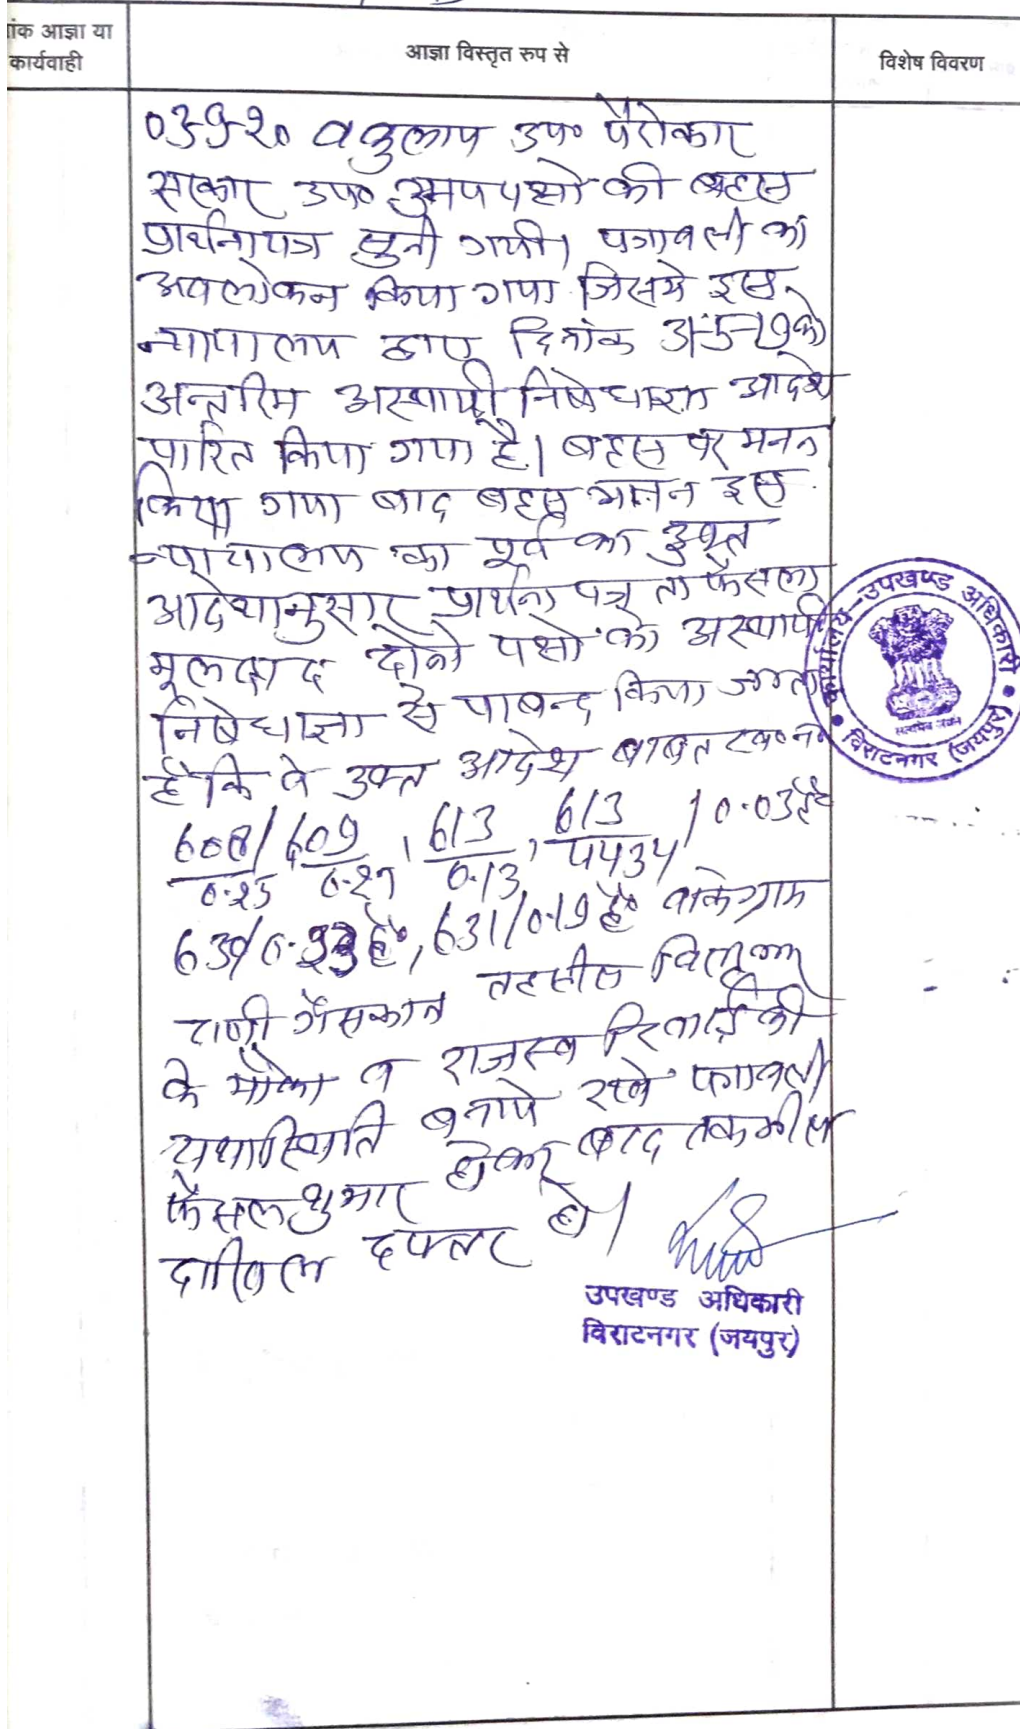 ांक आज्ञा या
कार्यवाही
आज्ञा विस्तृत रुप से
विशेष विवरण
03-9-20 वकुलाय उप० पैरोकार
सरकार उप० उभयपक्षो की बहस
प्रार्थनापत्र सुनी गयी। पत्रावली का
अवलोकन किया गया जिसमे इस
न्यायालय द्वारा दिनांक 31-5-19 को
अन्तरिम अस्थायी निषेधाज्ञा आदेश
पारित किया गया है। बहस पर मनन
किया गया बाद बहस मनन इस
न्यायालय का पूर्व का उक्त
आदेशानुसार प्रार्थना पत्र ता फैसला
मूलवाद दोनो पक्षो को अस्थायी
निषेधाज्ञा से पाबन्द किया जाता
है कि वे उक्त आदेश बाबत ख०न०
608/ 609, 613, 613 / 0.03 है०
0.13
631/0.19 है० वाकेग्राम
तहसील विराटनगर
के मौका व राजस्व रिकार्ड की
यथास्थिति बनाये रखे पत्रावली
फैसल शुमार होकर बाद तकमील
दाखिल दफ्तर हो।
उपखण्ड अधिकारी
विराटनगर (जयपुर)
कार्यालय-उपखण्ड अधिकारी
सत्यमेव जयते
विराटनगर (जयपुर)